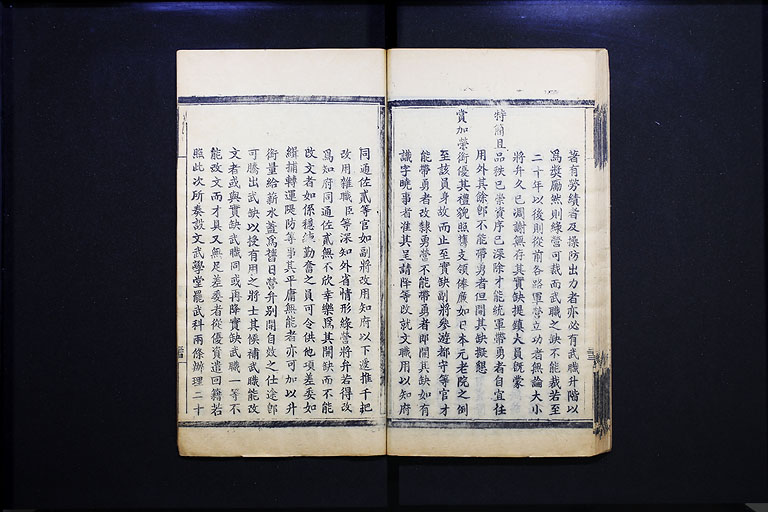 著有勞績者及操防出力者亦必有武職升階以
爲奬勵然則綠營可裁而武職之缺不能裁若至
二十年以後則從前各路軍營立功者無論大小
將弁久已凋謝無存其實缺提鎮大員既蒙
特簡且品秩已崇資序已深除才能統軍帶勇者自宜任
用外其餘卽不能帶勇者但開其缺擬懇
賞加榮銜優其禮貌照舊支領俸廉如日本元老院之例
至該員身故而止至實缺副將參遊都守等官才
能帶勇者改隸勇營不能帶勇者卽開其缺如有
識字曉事者准其呈請降等改就文職用以知府
同通佐貳等官如副將改用知府以下遞推千把
改用雜職臣等深知外省情形綠營將弁若得改
爲知府同通佐貳無不欣幸樂爲其開缺而不能
改文者如係穩練勤奮之員可令供他項差委如
緝捕轉運隄防等事其平庸無能者亦可加以升
銜量給薪水蓋爲舊日營弁別開自效之仕途卽
可騰出武缺以授有用之將士其候補武職能改
文者或與實缺武職同或再降實缺武職一等不
能改文而才具又無足差委者從優資遣回籍若
照此次所奏設文武學堂罷武科兩條辦理二十